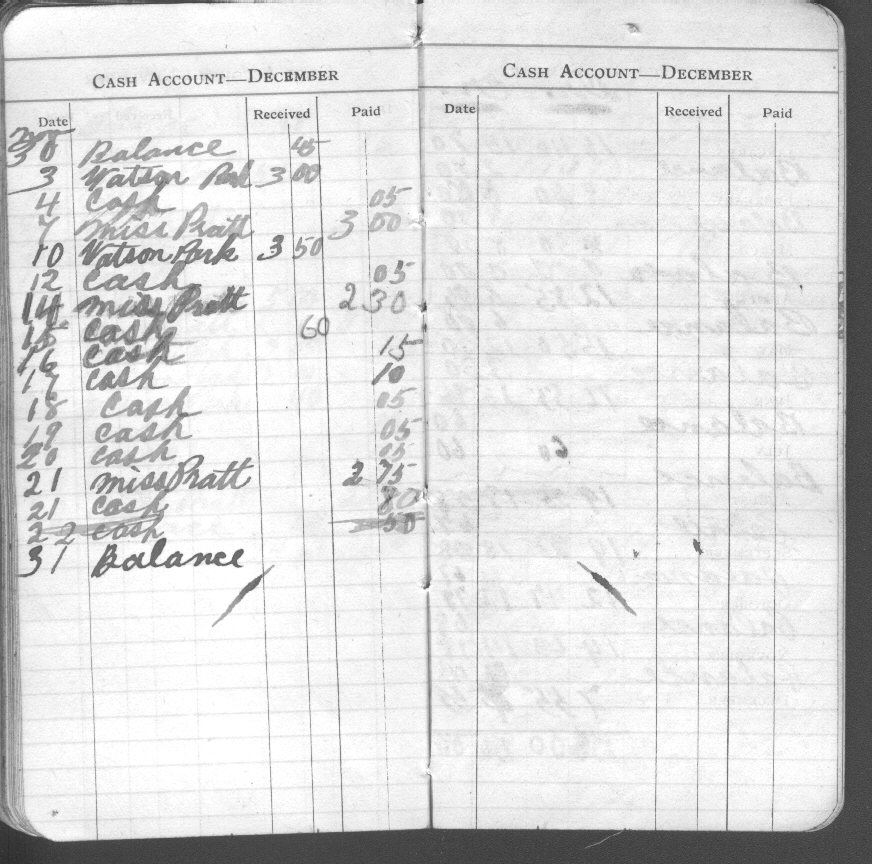 CASH ACCOUNT—DECEMBER
Date Received Paid
Nov
30 Balance 45
3 Watson Park 3 00
4 Cash 05
7 Miss Pratt 3 00
10 Watson Park 3 50
12 Cash 05
14 Miss Pratt 2 30
15 Cash 60
16 Cash 15
17 Cash 10
18 Cash 05
19 Cash 05
20 Cash 05
21 Miss Pratt 2 75
21 Cash 80
22 Cash 50
31 Balance
CASH ACCOUNT—DECEMBER
Date Received Paid